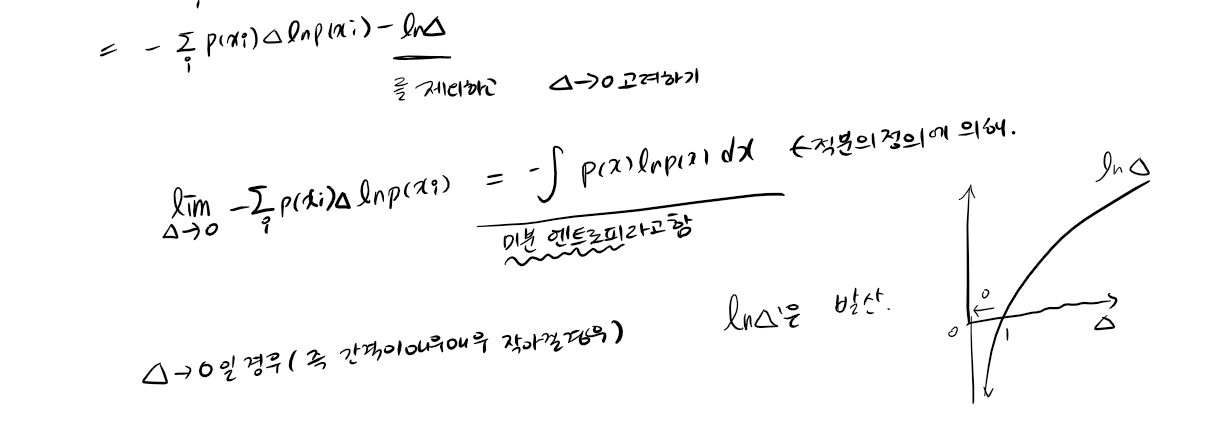 = - Σᵢ p(xᵢ)Δ ln p(xᵢ) - lnΔ
를 제외하고 Δ→0 고려하기
lim_{Δ→0} -Σᵢ p(xᵢ)Δ ln p(xᵢ) = -∫ p(x) ln p(x) dx ←적분의정의에 의해.
미분 엔트로피라고함
lnΔ
lnΔ은 발산.
0
0 1 Δ
Δ→0일 경우 (즉 간격이매우매우 작아질경우)